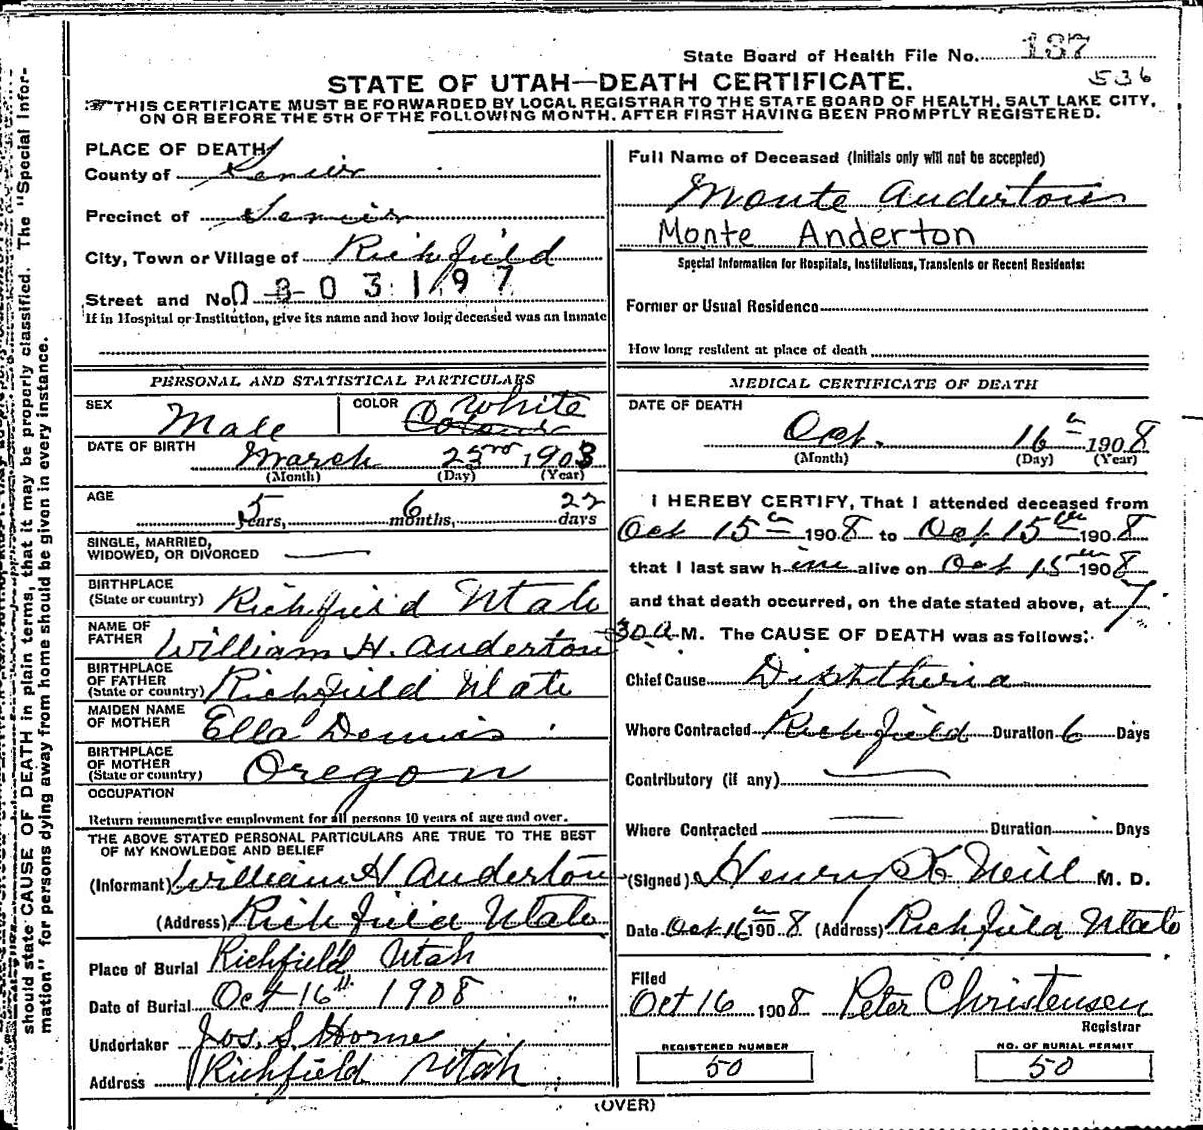 State Board of Health File No. 137
536
STATE OF UTAH—DEATH CERTIFICATE.
THIS CERTIFICATE MUST BE FORWARDED BY LOCAL REGISTRAR TO THE STATE BOARD OF HEALTH, SALT LAKE CITY,
ON OR BEFORE THE 5TH OF THE FOLLOWING MONTH, AFTER FIRST HAVING BEEN PROMPTLY REGISTERED.
should state CAUSE OF DEATH in plain terms, that it may be properly classified. The "Special Infor-
mation" for persons dying away from home should be given in every instance.
PLACE OF DEATH
County of Sevier
Precinct of Sevier
City, Town or Village of Richfield
Street and No. 0303197
If in Hospital or Institution, give its name and how long deceased was an Inmate
PERSONAL AND STATISTICAL PARTICULARS
SEX Male COLOR White
DATE OF BIRTH March 23rd 1903
(Month) (Day) (Year)
AGE 5 years, 6 months, 22 days
SINGLE, MARRIED,
WIDOWED, OR DIVORCED
BIRTHPLACE
(State or country) Richfield Utah
NAME OF
FATHER William H. Anderton
BIRTHPLACE
OF FATHER
(State or country) Richfield Utah
MAIDEN NAME
OF MOTHER Ella Dennis
BIRTHPLACE
OF MOTHER
(State or country) Oregon
OCCUPATION
Return remunerative employment for all persons 10 years of age and over.
THE ABOVE STATED PERSONAL PARTICULARS ARE TRUE TO THE BEST
OF MY KNOWLEDGE AND BELIEF
(Informant) William H Anderton
(Address) Richfield Utah
Place of Burial Richfield Utah
Date of Burial Oct 16th 1908 "
Undertaker Jos. S. Horne
Address Richfield Utah
Full Name of Deceased (Initials only will not be accepted)
Monte Anderton
Monte Anderton
Special Information for Hospitals, Institutions, Transients or Recent Residents:
Former or Usual Residence
How long resident at place of death
MEDICAL CERTIFICATE OF DEATH
DATE OF DEATH
Oct. 16th 1908
(Month) (Day) (Year)
I HEREBY CERTIFY, That I attended deceased from
Oct 15th 1908 to Oct 15th 1908
that I last saw him alive on Oct 15th 1908
and that death occurred, on the date stated above, at 7
30 a M. The CAUSE OF DEATH was as follows:
Chief Cause Diphtheria
Where Contracted Richfield Duration 6 Days
Contributory (if any)
Where Contracted Duration Days
(Signed) Henry K Neill M. D.
Date Oct 16th 1908 (Address) Richfield Utah
Filed
Oct 16 1908 Peter Christensen
Registrar
REGISTERED NUMBER
50
NO. OF BURIAL PERMIT
50
(OVER)